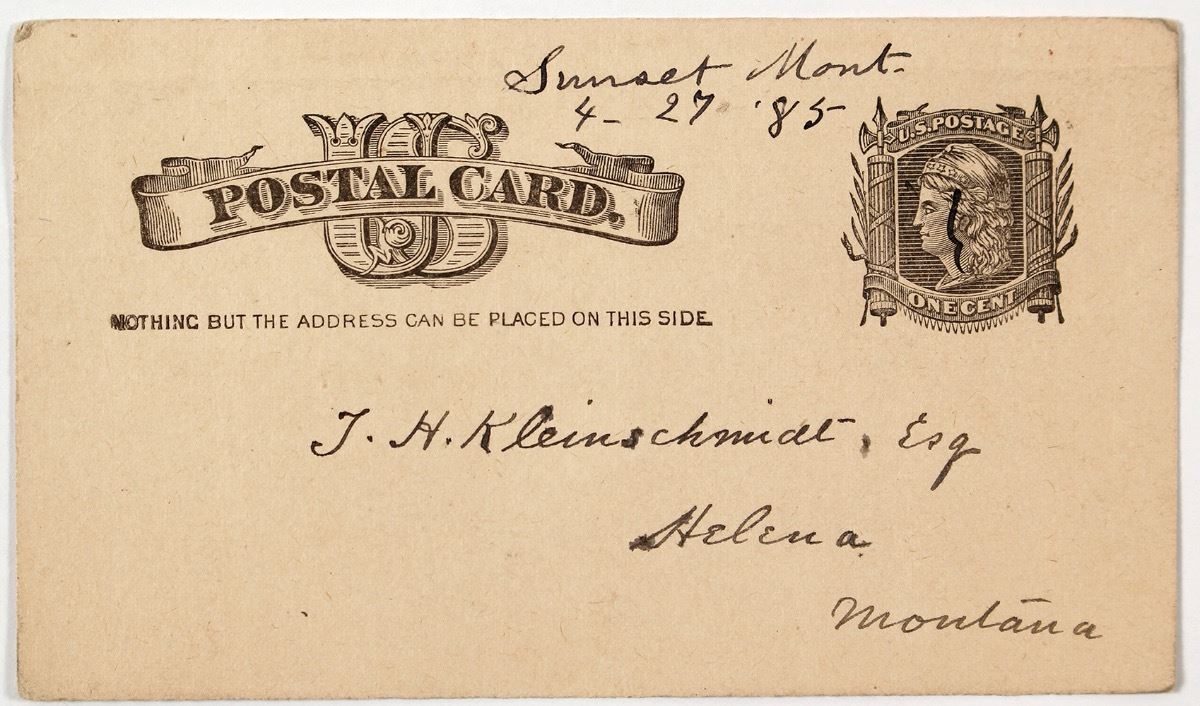 Sunset Mont.
4- 27 '85
US
POSTAL CARD.
U.S. POSTAGE
ONE CENT
NOTHING BUT THE ADDRESS CAN BE PLACED ON THIS SIDE.
T. H. Kleinschmidt, Esq
Helena
Montana